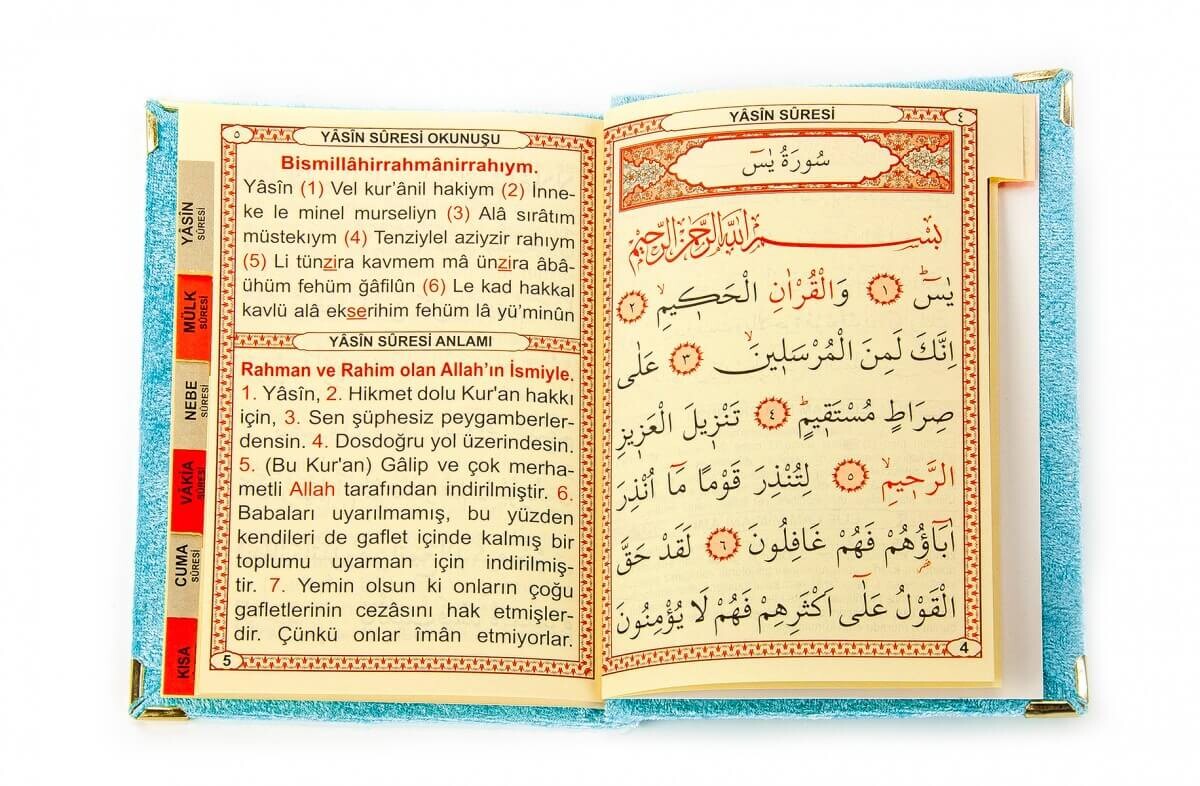 YÂSÎN SÛRESİ
٤
سُورَةُ يٰسٓ
بِسْمِ اللّٰهِ الرَّحْمٰنِ الرَّحِيمِ
يٰسٓ ﴿١﴾ وَالْقُرْاٰنِ الْحَكِيمِ ﴿٢﴾
اِنَّكَ لَمِنَ الْمُرْسَلِينَ ﴿٣﴾ عَلٰى
صِرَاطٍ مُسْتَقِيمٍ ﴿٤﴾ تَنْزِيلَ الْعَزِيزِ
الرَّحِيمِ ﴿٥﴾ لِتُنْذِرَ قَوْمًا مَٓا اُنْذِرَ
اٰبَٓاؤُ۬هُمْ فَهُمْ غَافِلُونَ ﴿٦﴾ لَقَدْ حَقَّ
الْقَوْلُ عَلٰٓى اَكْثَرِهِمْ فَهُمْ لَا يُؤْمِنُونَ
4
٥
YÂSÎN SÛRESİ OKUNUŞU
Bismillâhirrahmânirrahıym.
Yâsîn (1) Vel kur’ânil hakiym (2) İnne-
ke le minel murseliyn (3) Alâ sırâtım
müstekıym (4) Tenziylel aziyzir rahıym
(5) Li tünzira kavmem mâ ünzira âbâ-
ühüm fehüm ğâfilûn (6) Le kad hakkal
kavlü alâ ekserihim fehüm lâ yü’minûn
YÂSÎN SÛRESİ ANLAMI
Rahman ve Rahim olan Allah’ın İsmiyle.
1. Yâsîn, 2. Hikmet dolu Kur'an hakkı
için, 3. Sen şüphesiz peygamberler-
densin. 4. Dosdoğru yol üzerindesin.
5. (Bu Kur'an) Gâlip ve çok merha-
metli Allah tarafından indirilmiştir. 6.
Babaları uyarılmamış, bu yüzden
kendileri de gaflet içinde kalmış bir
toplumu uyarman için indirilmiş-
tir. 7. Yemin olsun ki onların çoğu
gafletlerinin cezâsını hak etmişler-
dir. Çünkü onlar îmân etmiyorlar.
5
YÂSÎN
SÛRESİ
MÜLK
SÛRESİ
NEBE
SÛRESİ
VÂKIA
SÛRESİ
CUMA
SÛRESİ
KISA